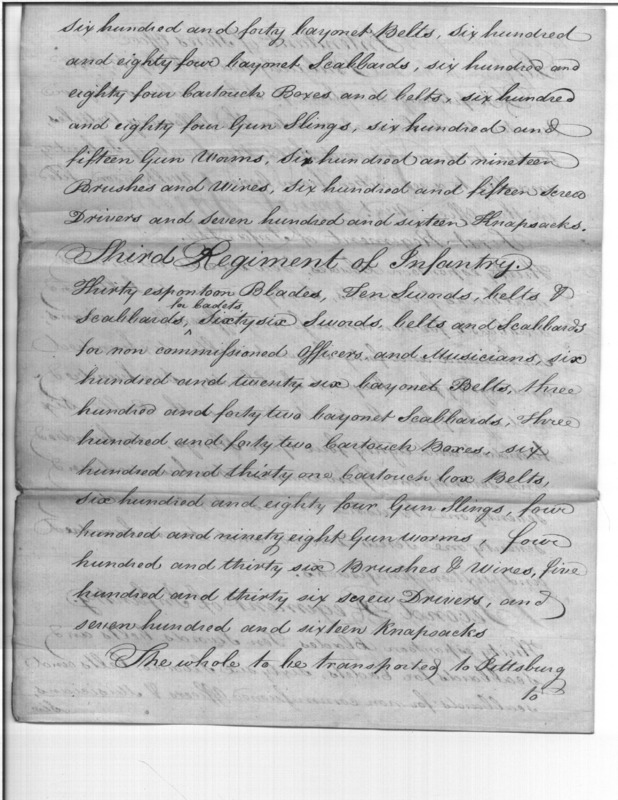 six hundred and forty bayonet Belts, six hundred
and eighty four bayonet Scabbards, six hundred and
eighty four Cartouch Boxes and belts, six hundred
and eighty four Gun Slings, six hundred and
fifteen Gun Worms, six hundred and nineteen
Brushes and Wires, six hundred and fifteen Screw
Drivers and seven hundred and sixteen Knapsacks.
Third Regiment of Infantry.
Thirty espontoon Blades, Ten Swords, belts &
for Cadets,
Scabbards, ^ Sixty six Swords, belts and Scabbards
for non commissioned Officers and Musicians, six
hundred and twenty six bayonet Belts, three
hundred and forty two bayonet Scabbards, Three
hundred and forty two Cartouch Boxes, six
hundred and thirty one Cartouch box Belts,
six hundred and eighty four Gun Slings, four
hundred and ninety eight Gun worms, four
hundred and thirty six Brushes & Wires, five
hundred and thirty six screw Drivers, and
seven hundred and sixteen Knapsacks
The whole to be transported to Pittsburg
to